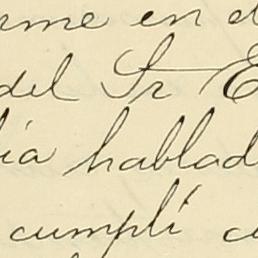 rme en d
del Sr E
ia hablad
cumplí c